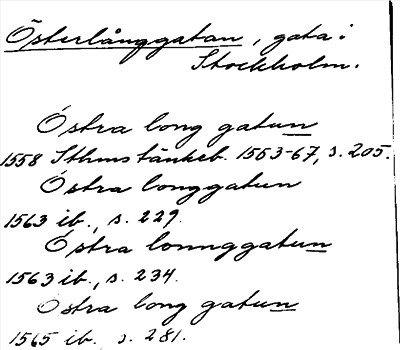 Österlånggatan, gata i
Stockholm.
Östra long gatun
1558 Sthms tänkeb. 1553-67, s. 205.
Östra longgatun
1563 ib., s. 229.
Östra lonnggatun
1563 ib., s. 234.
Östra long gatun
1565 ib. s. 281.